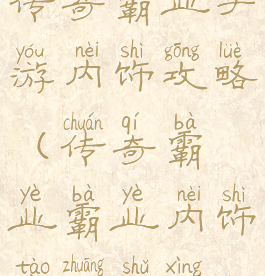 传奇霸业手
yóu nèi shì gōng lüè
游内饰攻略
chuán qí bà
（传奇霸
yè bà yè nèi shì
业霸业内饰
tào zhuāng shǔ xìng